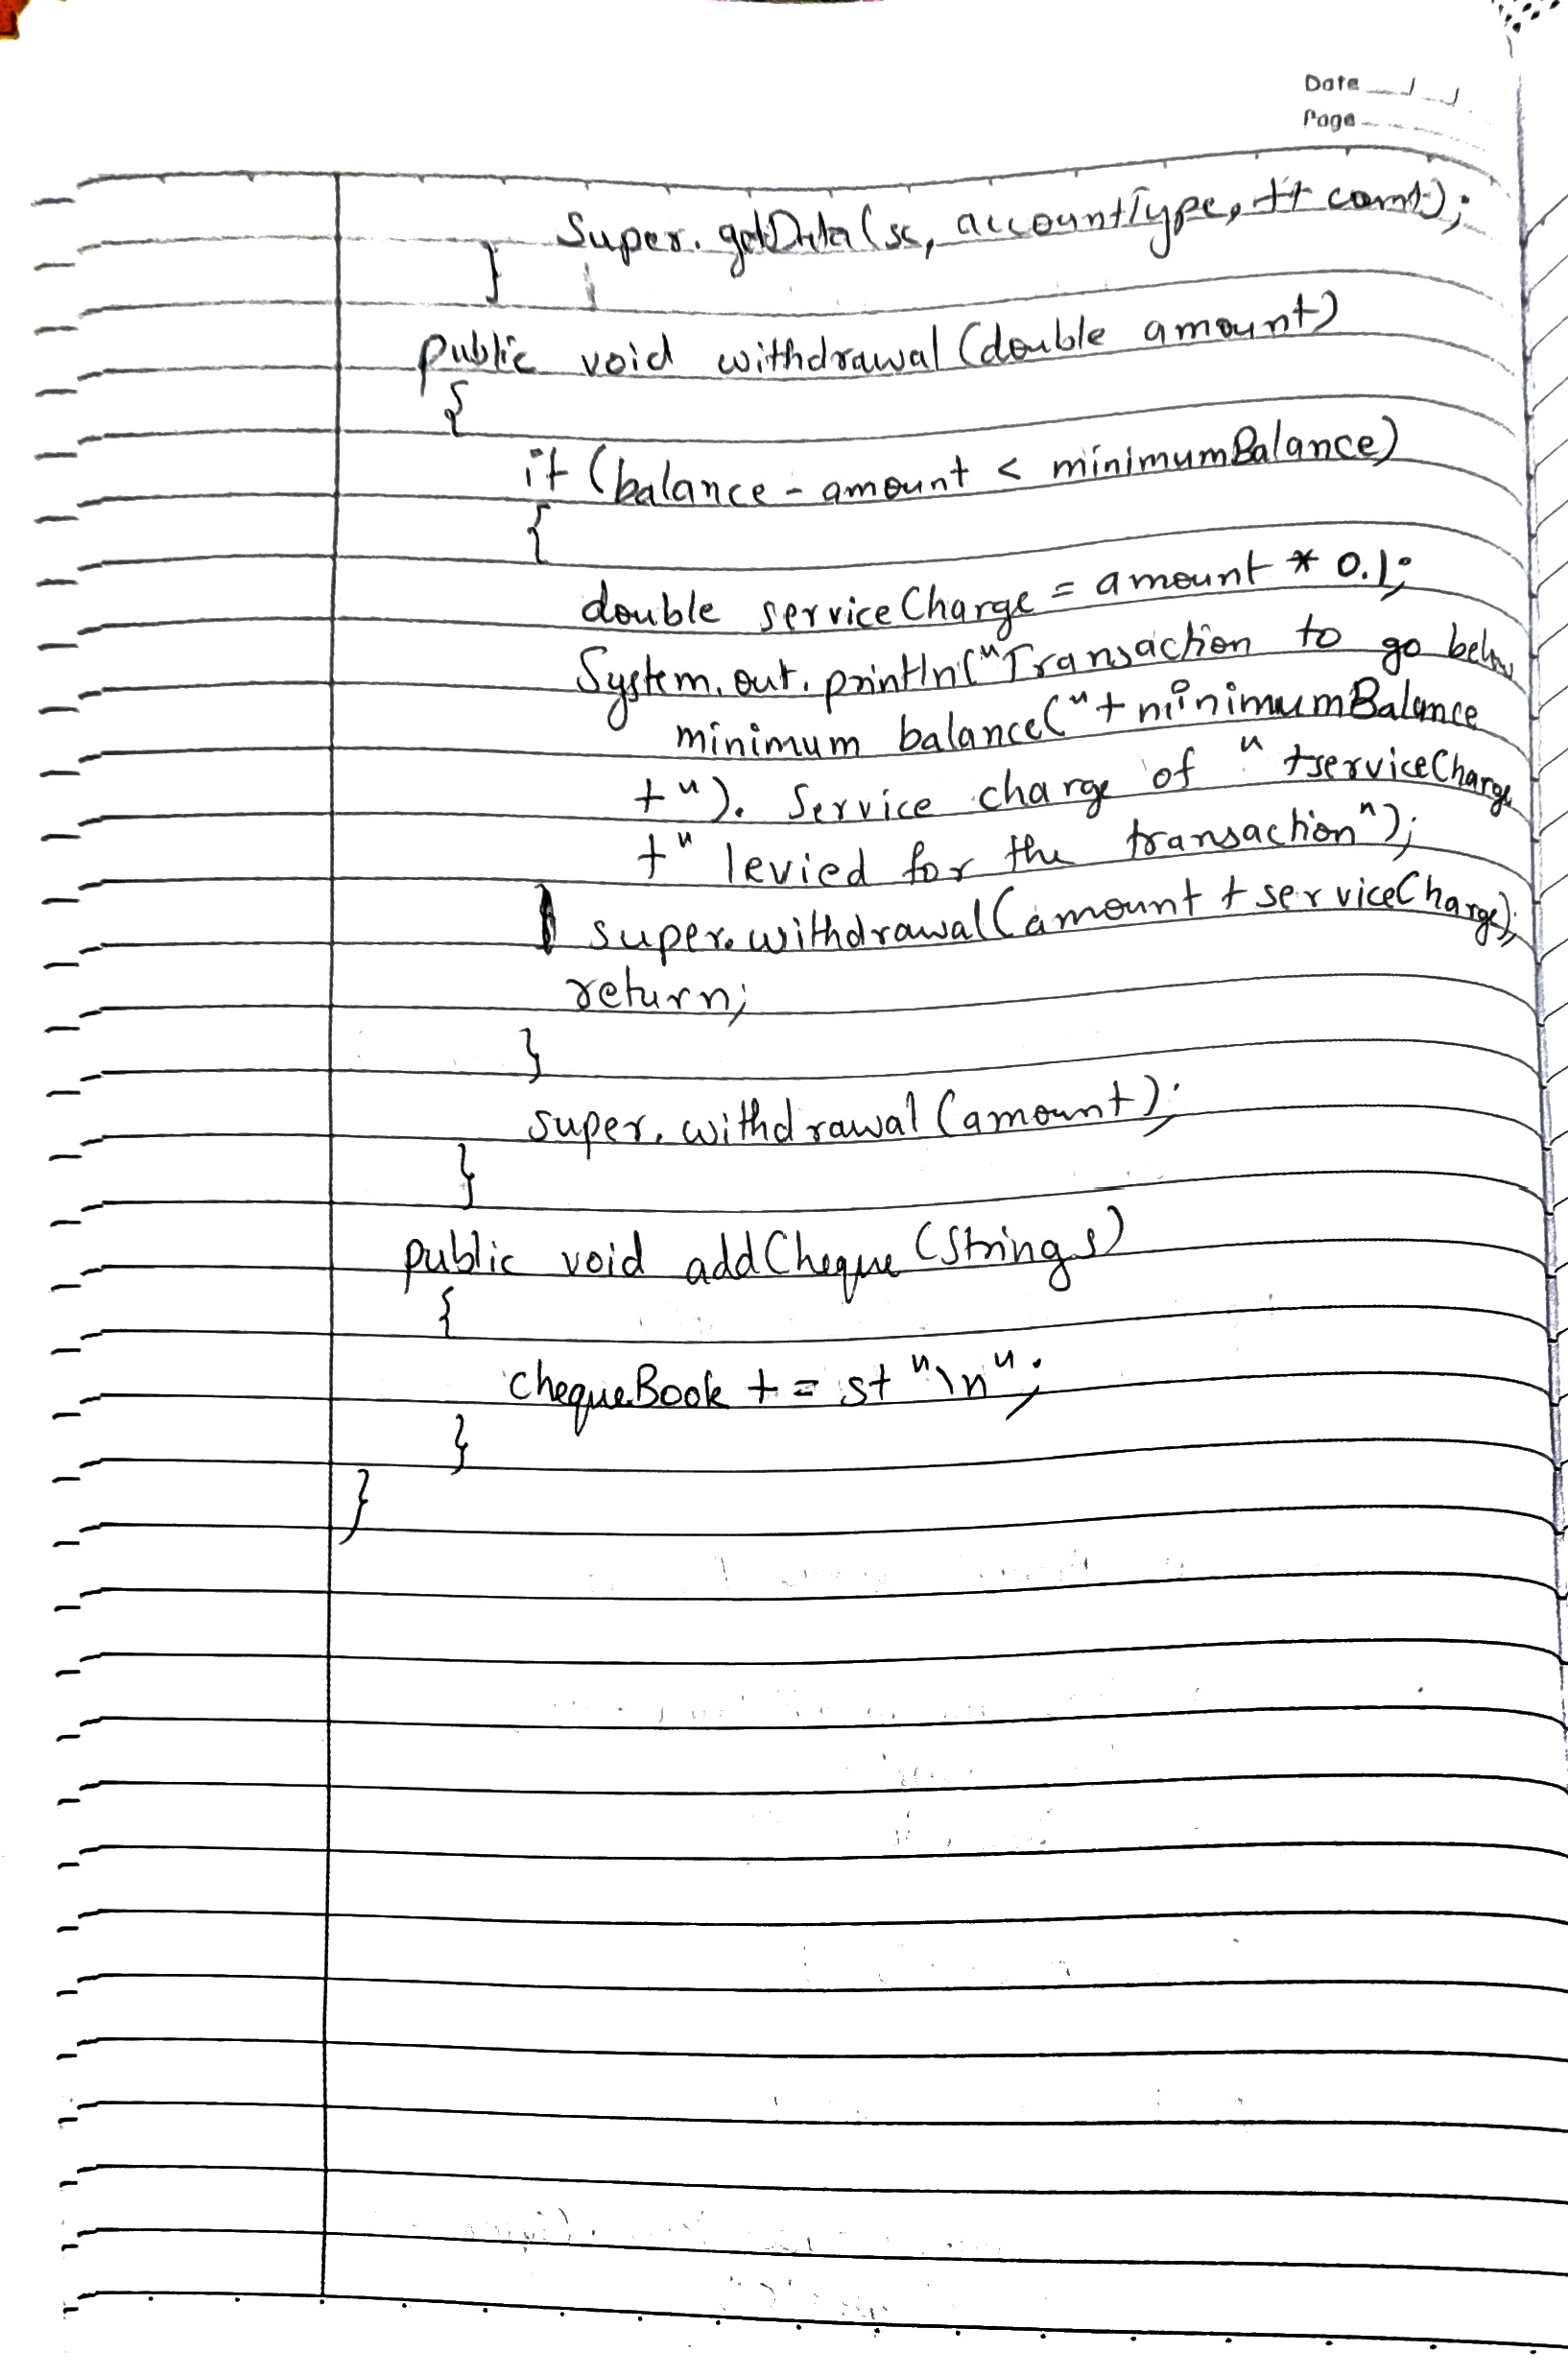 Date
Page
Super. getData(sc, accountType, ++ count);
}
public void withdrawal (double amount)
{
if (balance - amount < minimumBalance)
{
double serviceCharge = amount * 0.1;
System.out.println("Transaction to go below
minimum balance("+minimumBalance
+"). Service charge of "+serviceCharge
+" levied for the transaction");
super.withdrawal(amount + serviceCharge);
return;
}
super.withdrawal (amount);
}
public void addCheque (String s)
{
chequeBook += s+ "\n";
}
}